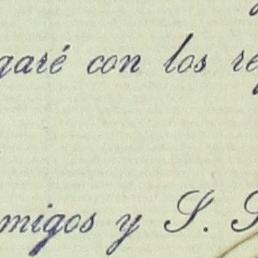 garé con los re
migos y S. S